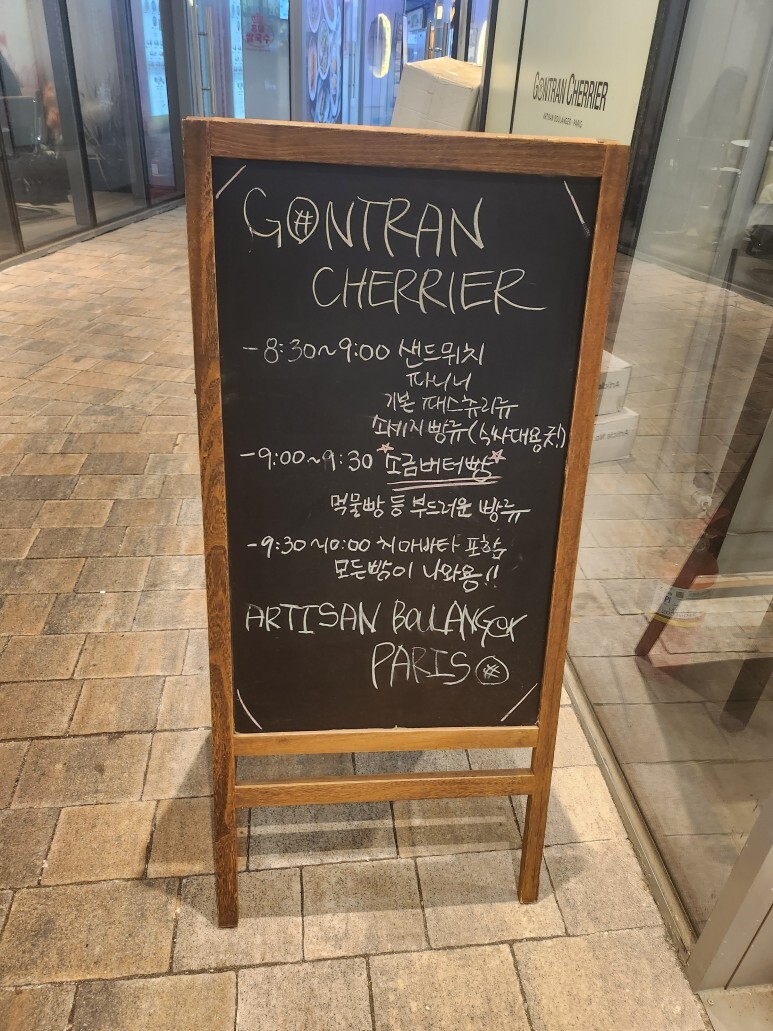 GONTRAN CHERRIER
ARTISAN BOULANGER · PARIS
G#NTRAN
CHERRIER
-8:30~9:00 샌드위치
파니니
기본 패스츄리류
소세지빵류(식사대용굿!)
-9:00~9:30 *소금버터빵*
먹물빵 등 부드러운 빵류
-9:30~10:00 치아바타 포함
모든빵이 나와용!!
ARTISAN BOULANGer
PARIS #